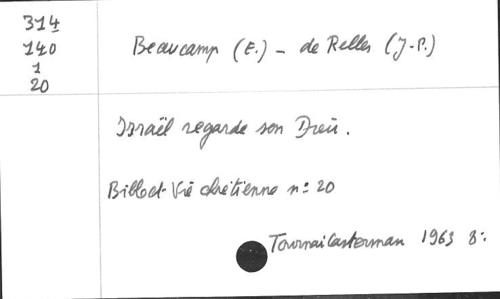 314
140
1
20
Beaucamp (E.) - de Relles (J-P.)
Israël regarde son Dieu.
Vie chrétienne n: 20
Tournai Casterman 1963 8: